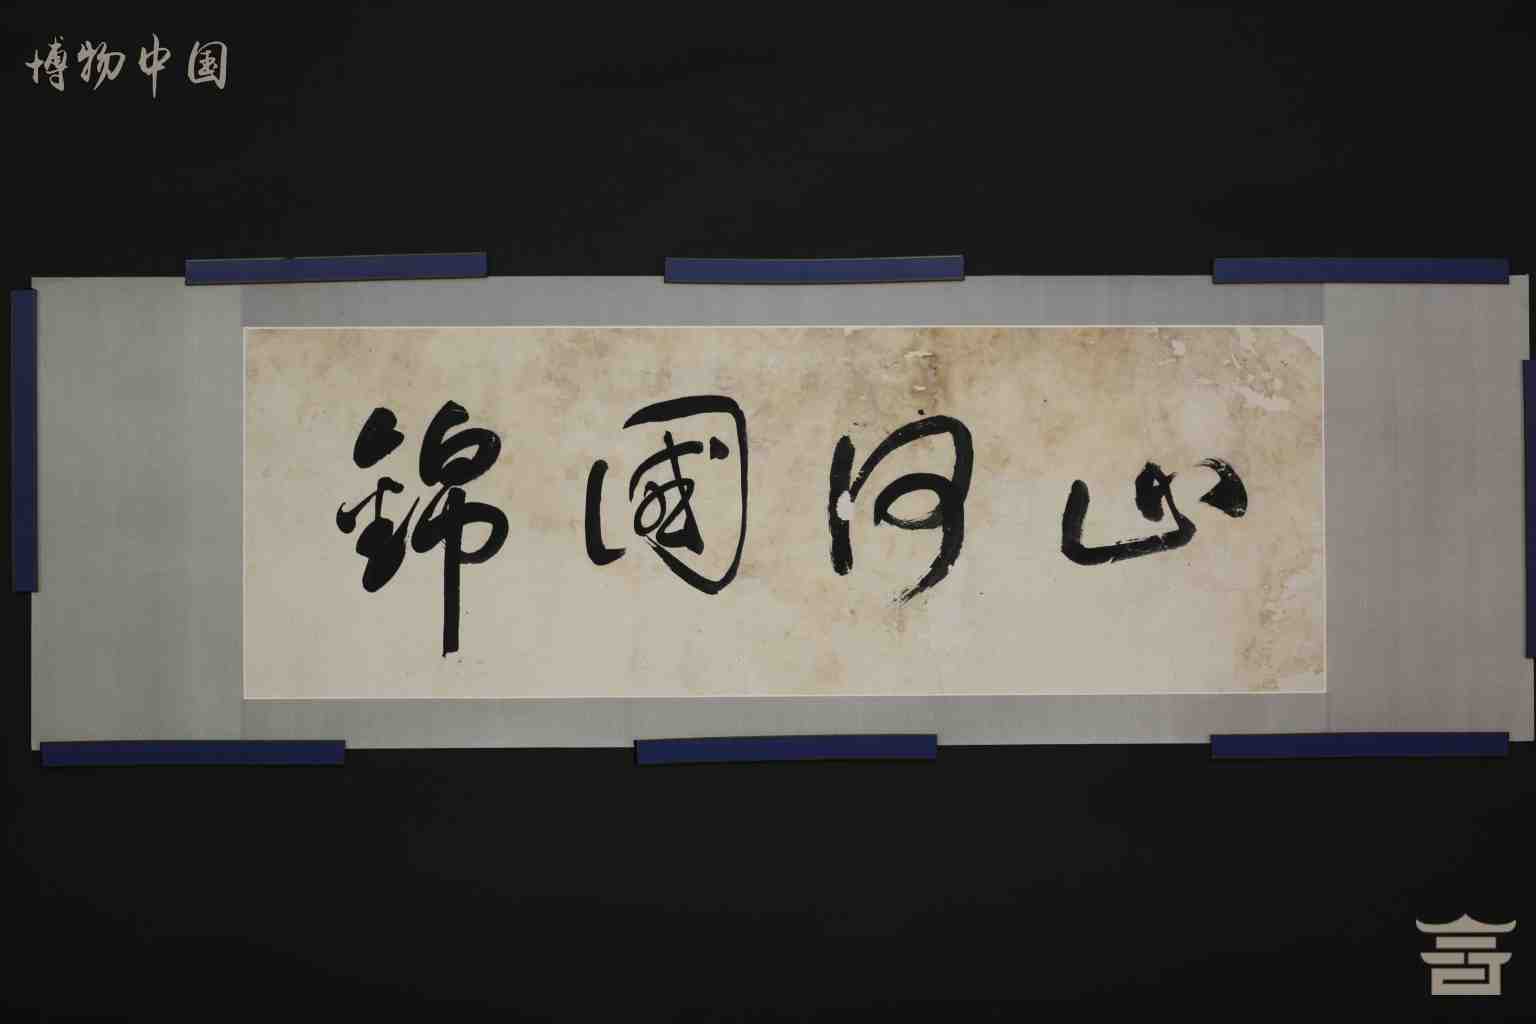 博物中国
山河國錦